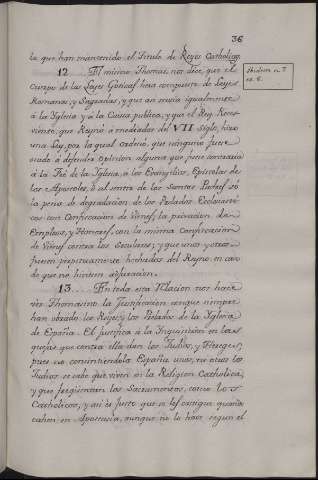 36
ta que han mantenido el Titulo de Reyes Catholicos.
12. El mismo Thomas, nos dice, que el
Cuerpo de las Leyes Goticas se compone de Leyes
Romanas, y Sagradas, y que an servia igualmente
á la Yglesia y á la Causa publica, y que el Rey Rece-
svinto, que Reynó á mediados del VII siglo, hizo
una Ley, por la qual ordenó, que ninguno fuere
osado á defender opinion alguna que fuese contraria
á la Fé de la Yglesia, á los Evangelios, Epistolas de
los Apostoles, ó al sentir de los Santos Padres só
la pena de degradacion de los Prelados Ecclesiasti-
cos con Confiscacion de Vienes, la privacion de
Empleos, y Honores, con la misma Confiscacion
de Vienes contra los Seculares; y que unos y otros
fuesen perpetuamente hechados del Reyno en ca-
so de que no hiciesen abjuracion.
13. En toda esta Relacion nos hace
vér Thomasino la Justificacion con que siempre
han obrado los Reyes, y los Prelados de la Yglesia
de España. El justifica á la Inquisicion en las
quejas que contra ella dan los Judios, y Hereges,
pues no consintiendo la España unos, ni otros los
Judios se sabe que viven en la Religion Catholica,
y que freqüentan los Sacramentos, como los
Catholicos, y asi es justo que se les castigue quando
cahen en Apostasia, aunque no lo hace segun el